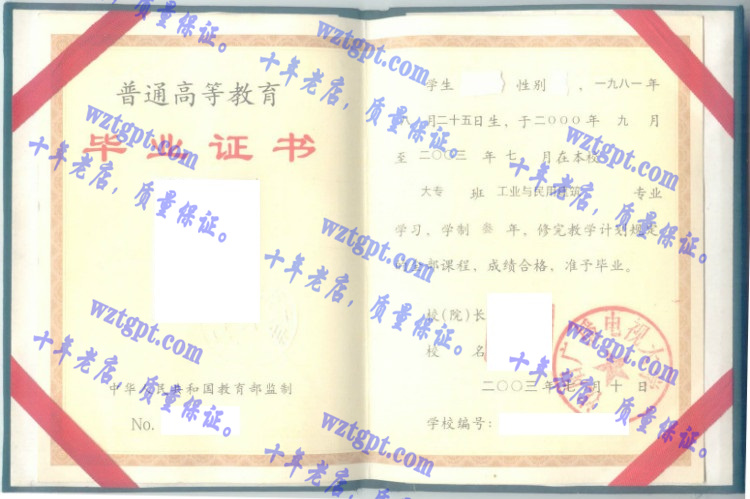 普通高等教育
毕业证书
中华人民共和国教育部监制
No.
学生 性别 ,一九八一年
八月二十五日生,于二〇〇〇年 九 月
至二〇〇三 年 七 月在本校
大专 班 工业与民用建筑 专业
学习,学制 叁 年,修完教学计划规定
的全部课程,成绩合格,准予毕业。
校(院)长
校 名
广播电视大学
二〇〇三年七月十日
学校编号:
wztgpt.com
十年老店,质量保证。
wztgpt.com
十年老店,质量保证。
wztgpt.com
十年老店,质量保证。
wztgpt.com
十年老店,质量保证。
wztgpt.com
十年老店,质量保证。
wztgpt.com
十年老店,质量保证。
wztgpt.com
十年老店,质量保证。